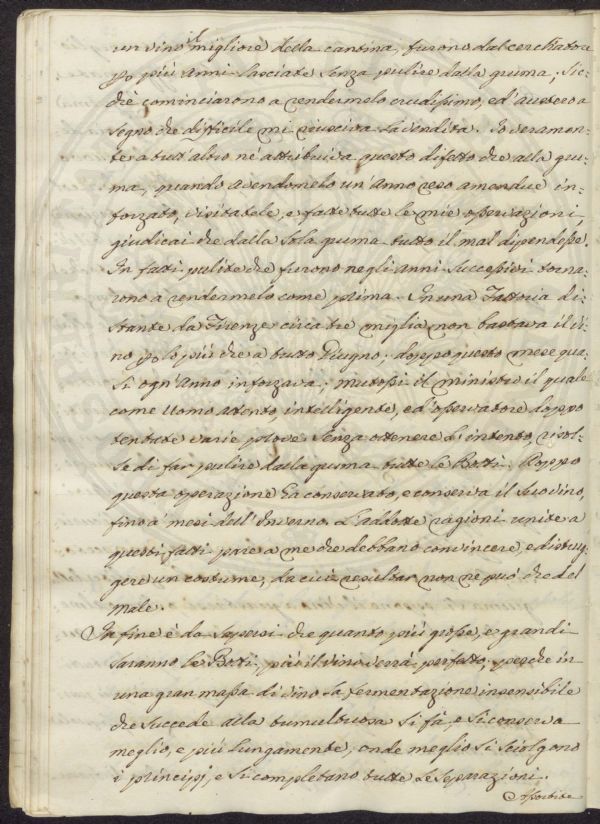 un vino il migliore della cantina, furono dal cerchiatore
p più anni lasciate senza pulire dalla gruma; sic=
chè cominciarono a rendermelo crudissimo, ed'austero a
segno che difficile mi riusciva la vendita. Io veramen=
te a tutt'altro ne attribuiva questo difetto che alla gru=
ma, quando avendomelo un'anno reso amendue in=
forzato, visitatele, e fatte tutte le mie osservazioni,
giudicai che dalla sola gruma tutto il mal dipendesse.
In fatti pulite che furono negli anni successivi torna=
rono a rendermelo come prima. In una Fattoria di=
stante da Firenze circa tre miglia non bastava il vi=
no p lo più che a tutto Giugno; doppo questo mese qua=
si ogn'anno inforzava; mutossi il ministro il quale
come Uomo attento, intelligente, ed'osservatore doppo
tentate varie prove senza ottenere l'intento, risol=
se di far pulire dalla gruma tutte le Botti. Doppo
questa operazione ha conservato, e conserva il suo vino,
fino a' mesi dell'Inverno. L'addotte ragioni unite a
questi fatti pare a me che debbano convincere, e distrug=
gere un costume, da cui resultar non ne può che del
male.
In fine è da sapersi che quanto più grosse, e grandi
saranno le Botti, più il vino verrà perfetto, perche in
una gran massa di vino la fermentazione insensibile
che succede alla tumultuosa si fà, e si conserva
meglio, e più lungamente, onde meglio si sciolgono
i principj, e si completano tutte le separazioni.